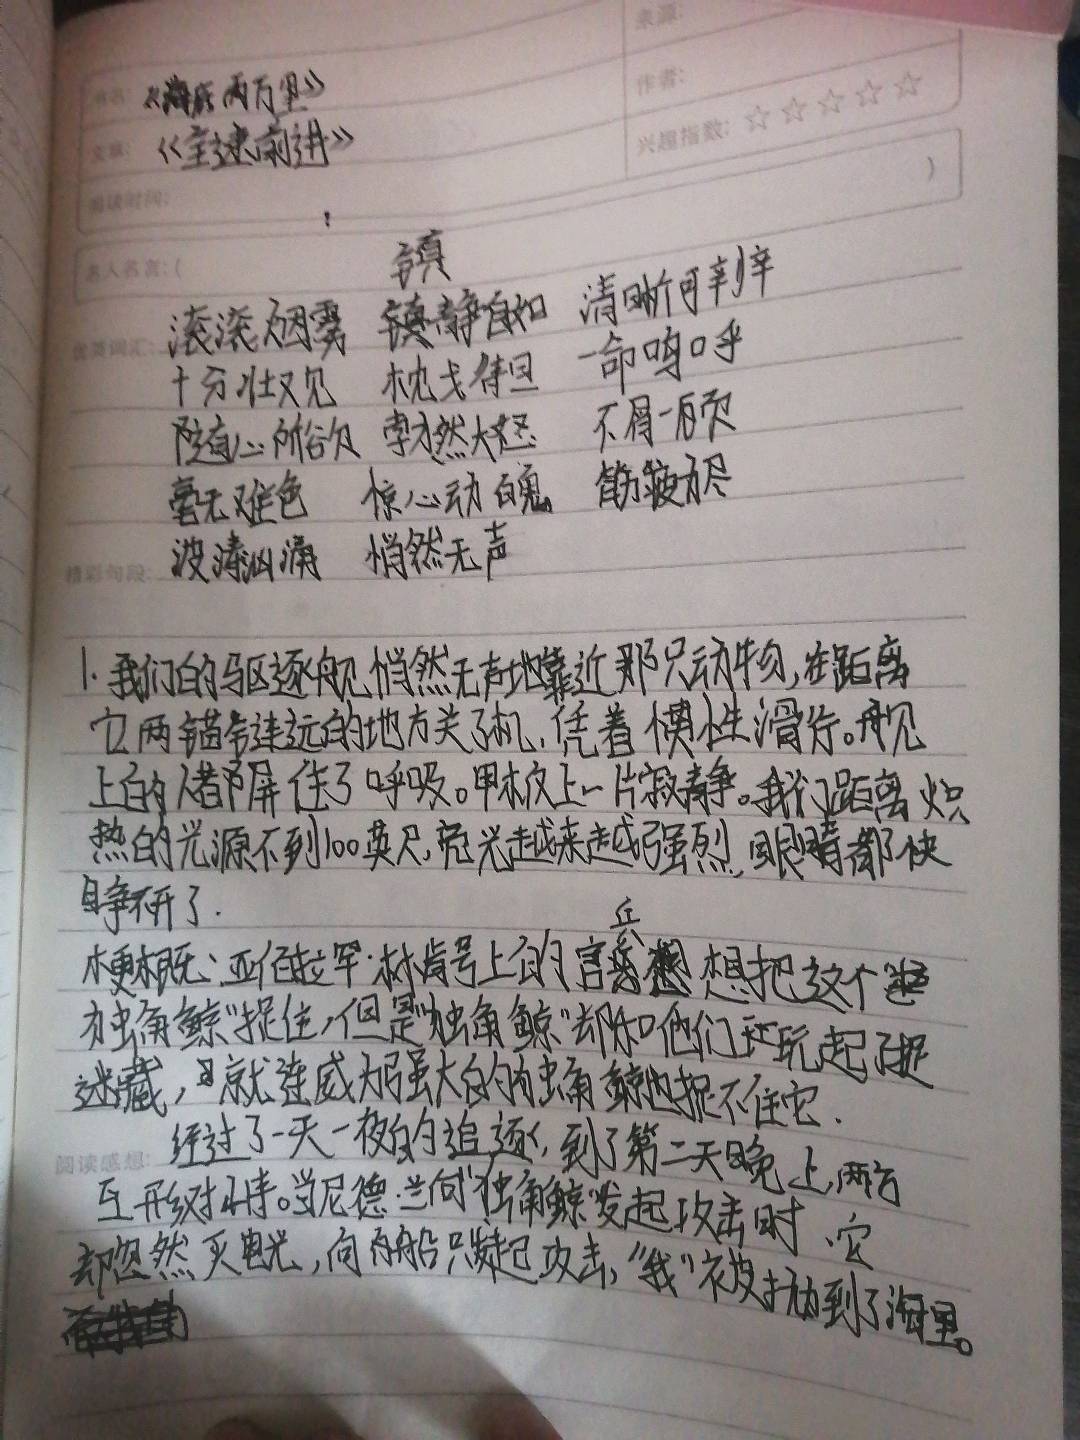 来源:
书名: 《海底两万里》
作者:
文章: 《全速前进》
兴趣指数: ☆☆☆☆☆
阅读时间: )
名人名言:( 镇
滚滚烟雾 镇静自如 清晰可辨
优美词汇:
十分壮观 枕戈待旦 一命呜呼
随心所欲 勃然大怒 不屑一顾
毫无难色 惊心动魄 筋疲力尽
精彩句段: 波涛汹涌 悄然无声
1.我们的驱逐舰悄然无声地靠近那只动物,在距离
它两锚链远的地方关了机,凭着惯性滑行。舰
上的人都屏住了呼吸。甲板上一片寂静。我们距离炽
热的光源不到100英尺,亮光越来越强烈,眼睛都快
睁不开了.
兵
梗概:亚伯拉罕·林肯号上的官 想把这个"
独角鲸"捉住,但是"独角鲸"却和他们玩起了捉
迷藏, 就连威力强大的 独角鲸也捉不住它.
经过了一天一夜的追逐,到了第二天晚上,两方
阅读感想:
互形对峙。当尼德·兰向"独角鲸"发起攻击时,它
却忽然灭电光,向船只发起攻击,"我"被抛到了海里。